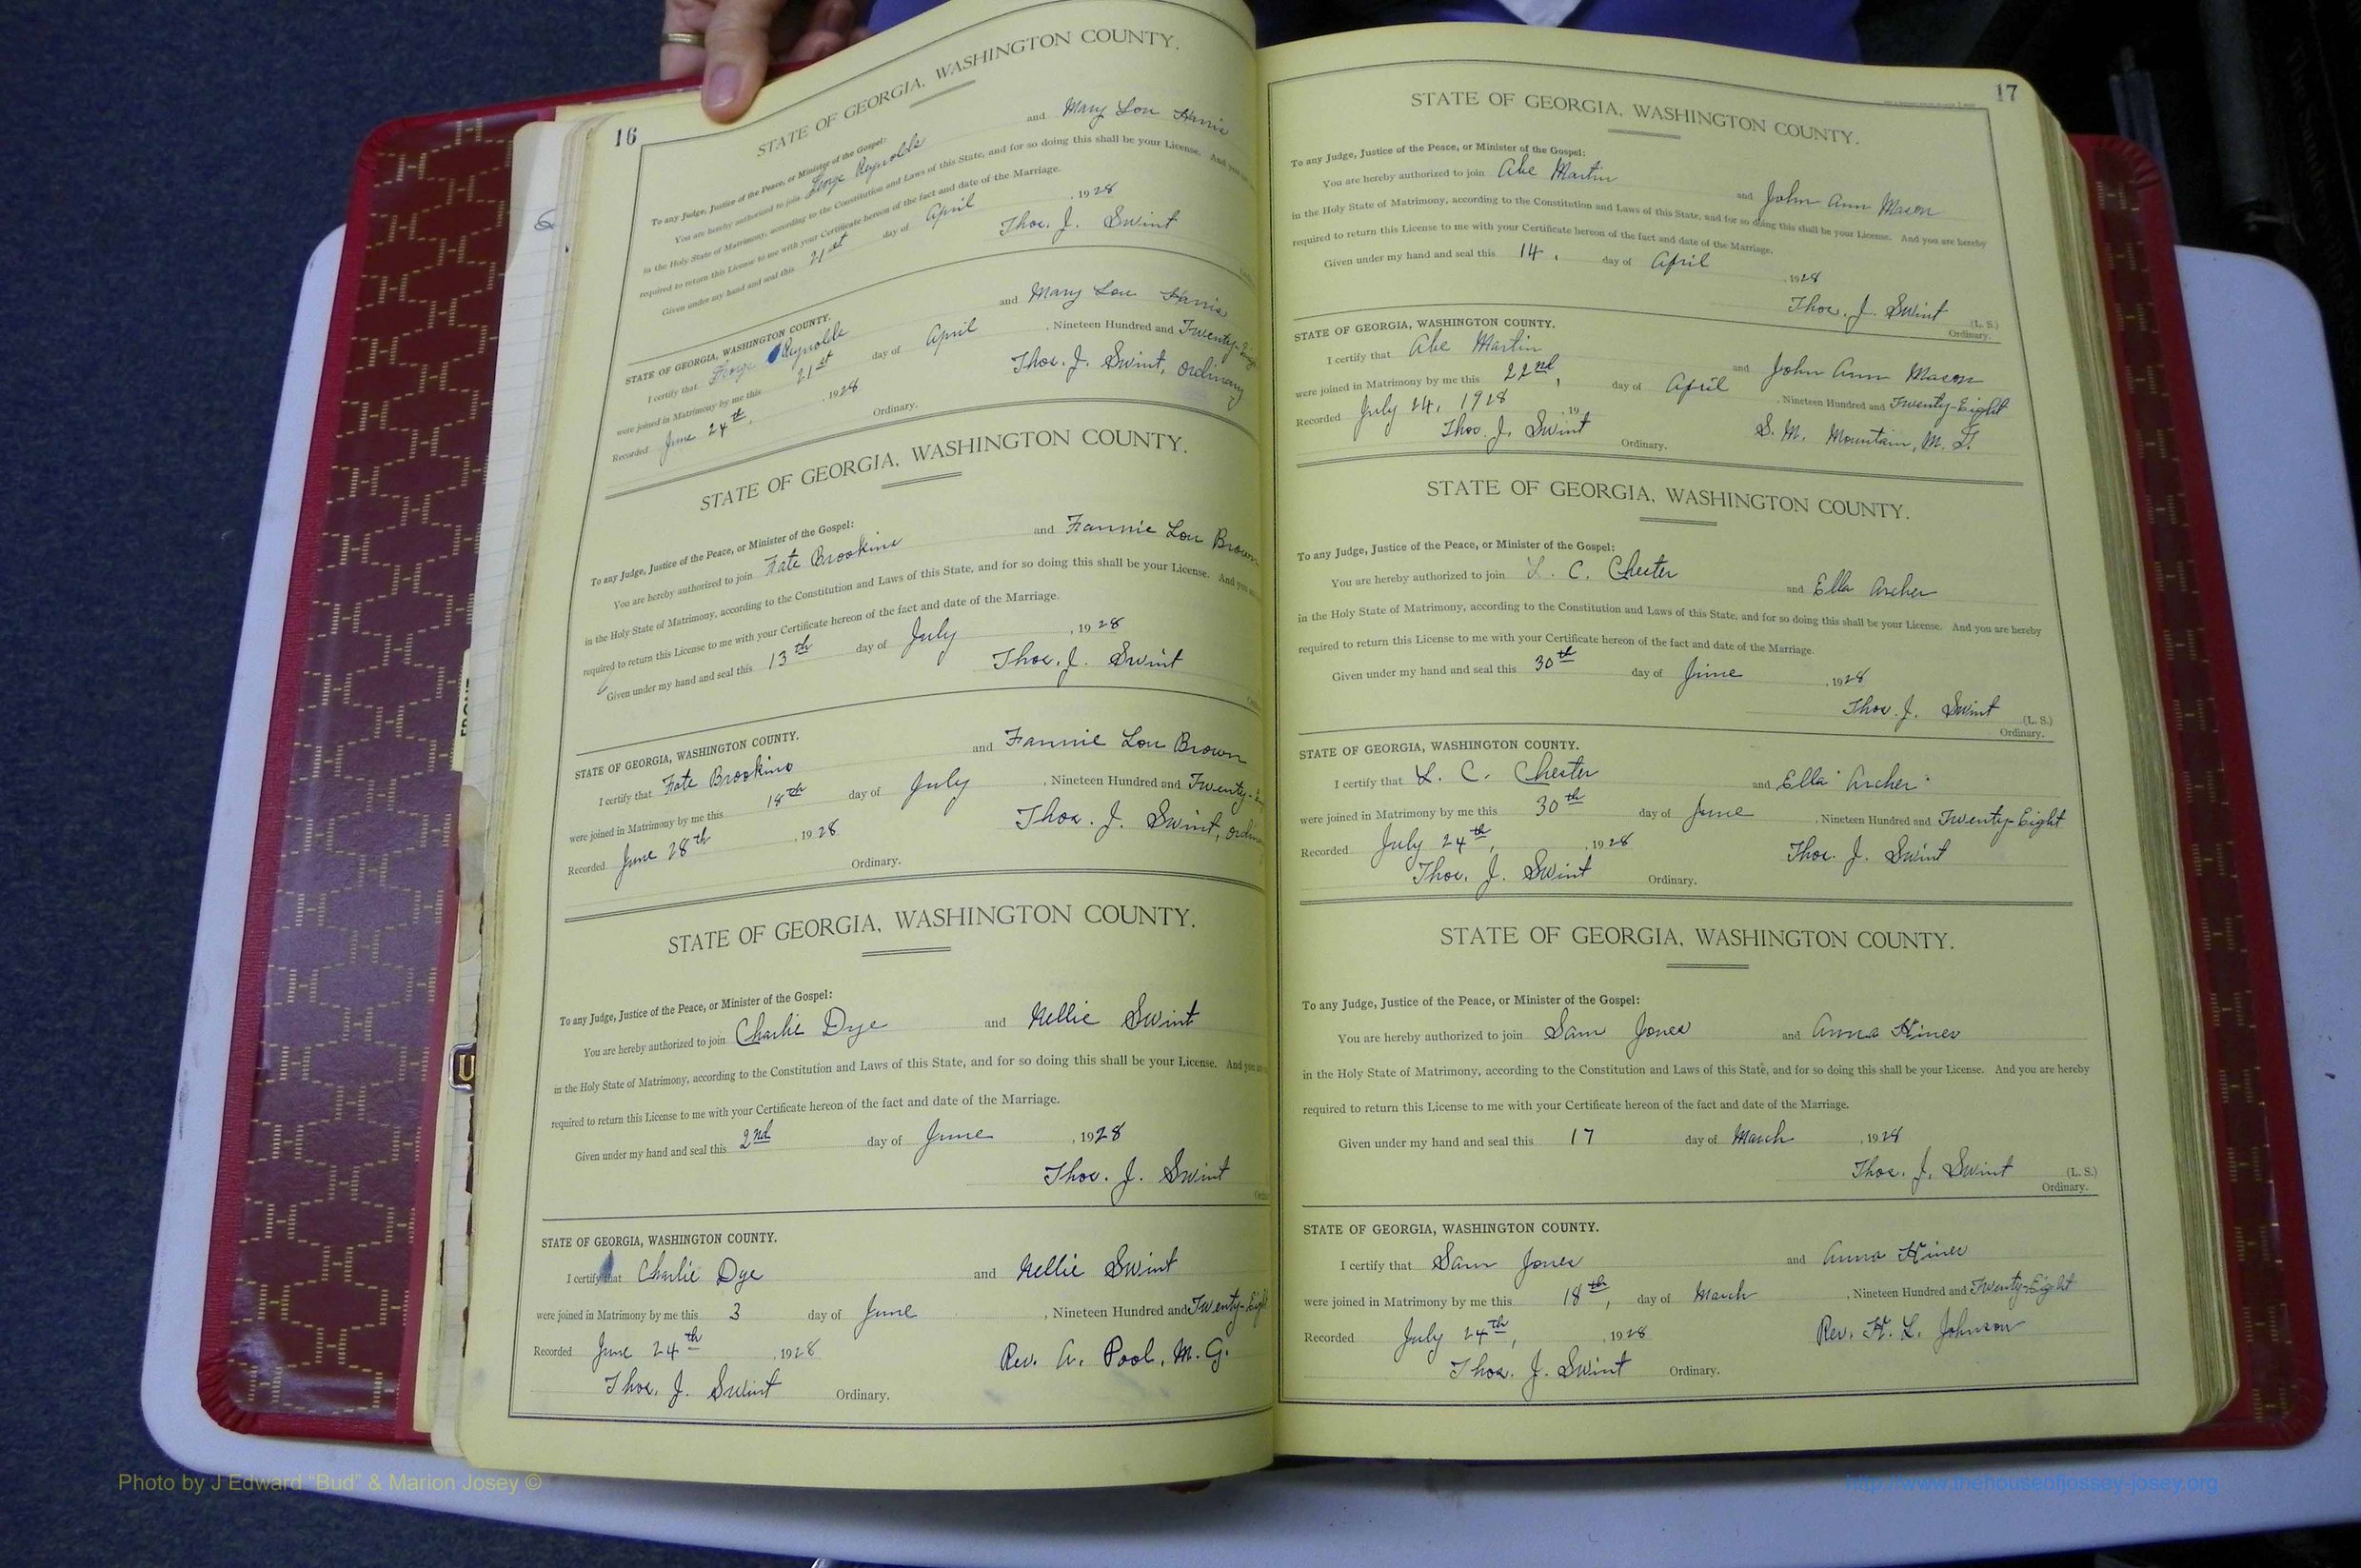 16
STATE OF GEORGIA, WASHINGTON COUNTY.
To any Judge, Justice of the Peace, or Minister of the Gospel:
You are hereby authorized to join George Reynolds and Mary Lou Harris
in the Holy State of Matrimony, according to the Constitution and Laws of this State, and for so doing this shall be your License. And you
required to return this License to me with your Certificate hereon of the fact and date of the Marriage.
Given under my hand and seal this 21st day of April, 1928
Thos. J. Swint
STATE OF GEORGIA, WASHINGTON COUNTY.
I certify that George Reynolds and Mary Lou Harris
were joined in Matrimony by me this 21st day of April, Nineteen Hundred and Twenty-Eig
Recorded June 24th, 1928 Thos. J. Swint, Ordinary
Ordinary.
STATE OF GEORGIA, WASHINGTON COUNTY.
To any Judge, Justice of the Peace, or Minister of the Gospel:
You are hereby authorized to join Fate Brookins and Fannie Lou Brown
in the Holy State of Matrimony, according to the Constitution and Laws of this State, and for so doing this shall be your License. And you
required to return this License to me with your Certificate hereon of the fact and date of the Marriage.
Given under my hand and seal this 13th day of July, 1928
Thos. J. Swint
STATE OF GEORGIA, WASHINGTON COUNTY.
I certify that Fate Brookins and Fannie Lou Brown
were joined in Matrimony by me this 18th day of July, Nineteen Hundred and Twenty-
Recorded June 28th, 1928 Thos. J. Swint, Ordin
Ordinary.
STATE OF GEORGIA, WASHINGTON COUNTY.
To any Judge, Justice of the Peace, or Minister of the Gospel:
You are hereby authorized to join Charlie Dye and Nellie Swint
in the Holy State of Matrimony, according to the Constitution and Laws of this State, and for so doing this shall be your License. And you
required to return this License to me with your Certificate hereon of the fact and date of the Marriage.
Given under my hand and seal this 2nd day of June, 1928
Thos. J. Swint
STATE OF GEORGIA, WASHINGTON COUNTY.
I certify that Charlie Dye and Nellie Swint
were joined in Matrimony by me this 3 day of June, Nineteen Hundred and Twenty-Eigh
Recorded June 24th, 1928 Rev. A. Pool, M. G.
Thos. J. Swint Ordinary.
17
STATE OF GEORGIA, WASHINGTON COUNTY.
To any Judge, Justice of the Peace, or Minister of the Gospel:
You are hereby authorized to join Abe Martin and John Ann Mason
in the Holy State of Matrimony, according to the Constitution and Laws of this State, and for so doing this shall be your License. And you are hereby
required to return this License to me with your Certificate hereon of the fact and date of the Marriage.
Given under my hand and seal this 14, day of April, 1928
Thos. J. Swint (L. S.)
Ordinary.
STATE OF GEORGIA, WASHINGTON COUNTY.
I certify that Abe Martin and John Ann Mason
were joined in Matrimony by me this 22nd, day of April, Nineteen Hundred and Twenty-Eight
Recorded July 24, 1928, 19 S. M. Mountain, M. G.
Thos. J. Swint Ordinary.
STATE OF GEORGIA, WASHINGTON COUNTY.
To any Judge, Justice of the Peace, or Minister of the Gospel:
You are hereby authorized to join L. C. Chester and Ella Archer
in the Holy State of Matrimony, according to the Constitution and Laws of this State, and for so doing this shall be your License. And you are hereby
required to return this License to me with your Certificate hereon of the fact and date of the Marriage.
Given under my hand and seal this 30th day of June, 1928
Thos. J. Swint (L. S.)
Ordinary.
STATE OF GEORGIA, WASHINGTON COUNTY.
I certify that L. C. Chester and Ella Archer
were joined in Matrimony by me this 30th day of June, Nineteen Hundred and Twenty-Eight
Recorded July 24th, 1928 Thos. J. Swint
Thos. J. Swint Ordinary.
STATE OF GEORGIA, WASHINGTON COUNTY.
To any Judge, Justice of the Peace, or Minister of the Gospel:
You are hereby authorized to join Sam Jones and Anna Hines
in the Holy State of Matrimony, according to the Constitution and Laws of this State, and for so doing this shall be your License. And you are hereby
required to return this License to me with your Certificate hereon of the fact and date of the Marriage.
Given under my hand and seal this 17 day of March, 1928
Thos. J. Swint (L. S.)
Ordinary.
STATE OF GEORGIA, WASHINGTON COUNTY.
I certify that Sam Jones and Anna Hines
were joined in Matrimony by me this 18th, day of March, Nineteen Hundred and Twenty-Eight
Recorded July 24th, 1928 Rev. H. L. Johnson
Thos. J. Swint Ordinary.
Photo by J Edward "Bud" & Marion Josey ©
http://www.thehouseofjossey-josey.org